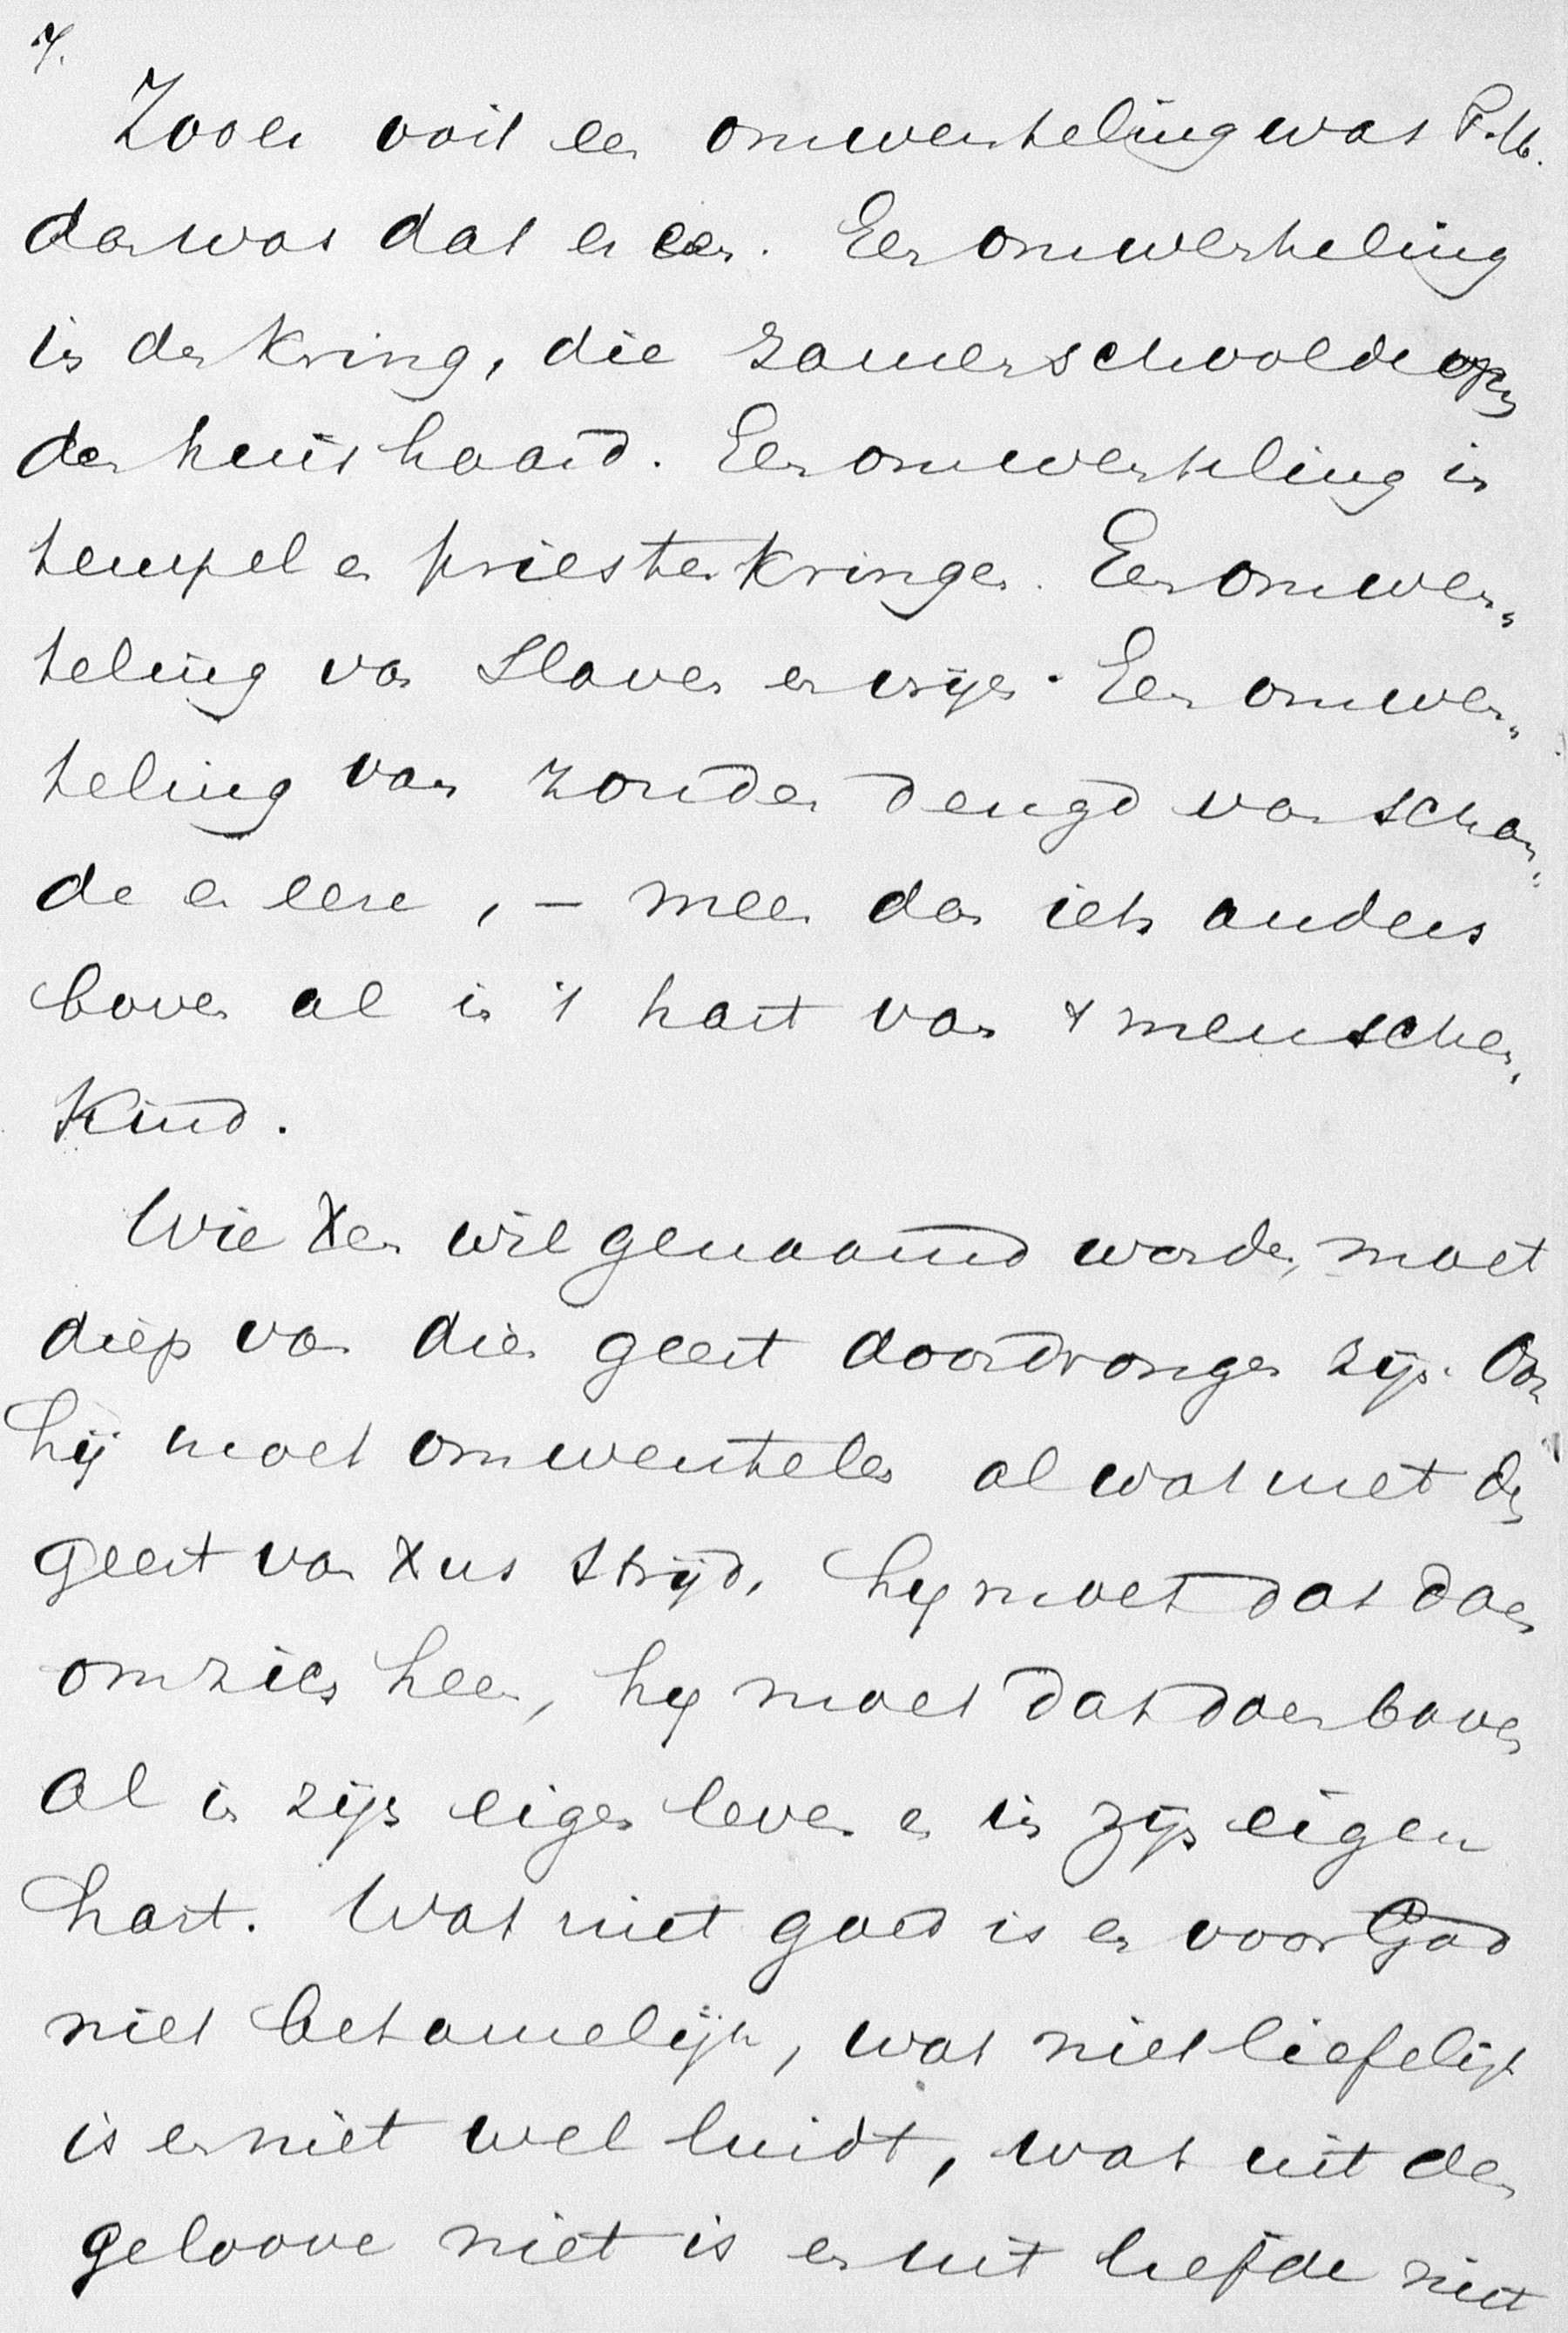 7.
Zoo er ooit een omwenteling was G. M.
dan was dat er een. Een omwenteling
in den kring, die zamenschoolde om
den huishaard. Een omwenteling in
tempel en priesterkringen. Een omwen„
teling van slaven en vrijen. Een omwen„
teling van zonde en deugd van schan„
de en eere, – meer dan iets anders
boven al in 't hart van 't menschen„
kind.
Wie Xen wil genaamd worden, moet
diep van dien geest doordrongen zijn. Ook
hij moet omwentelen al wat met den
geest van Xus strijd. hij moet dat doen
om zich heen, hij moet dat doen boven
al in zijn eigen leven en in zijn eigen
hart. Wat niet goed is en voor God
niet betamelijk, wat niet liefelijk
is en niet wel luidt, wat uit den
geloove niet is en uit liefde niet